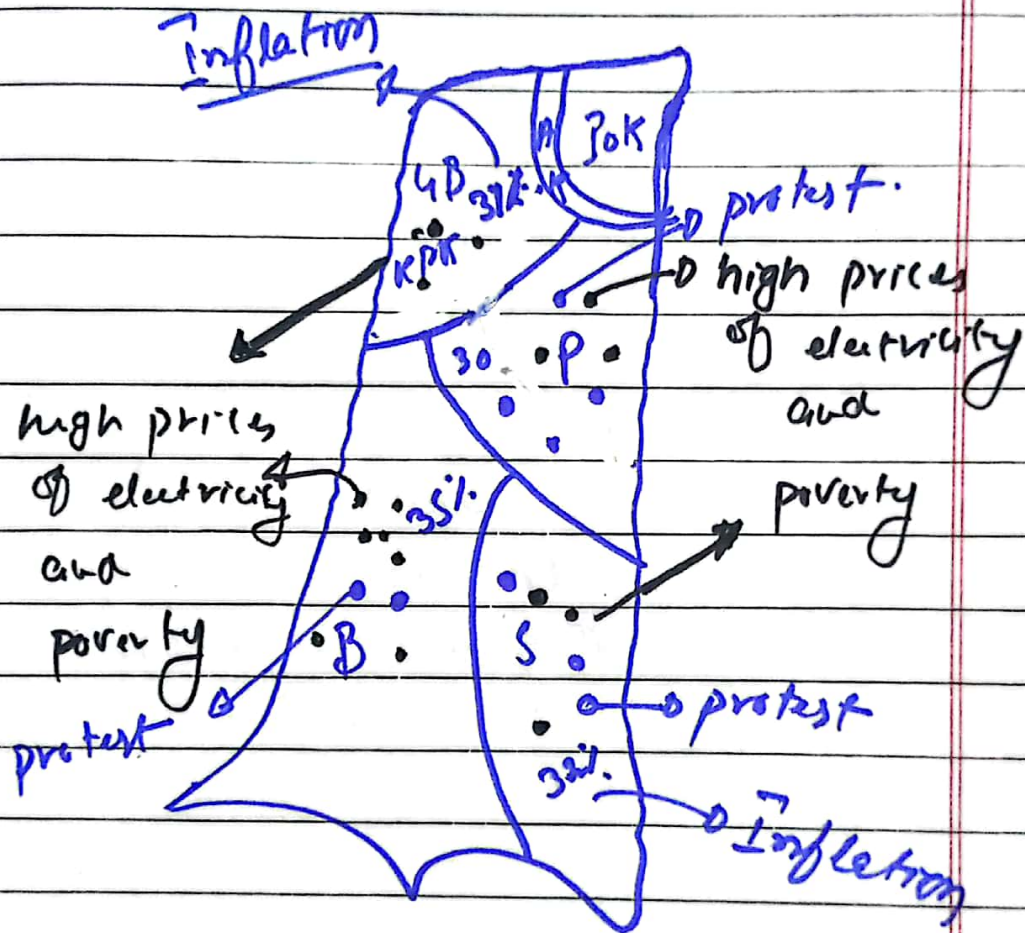 Inflation
GB
37%.
AK
IOK
protest.
KPK
high prices
of electricity
and
poverty
30
P
high prices
of electricity
and
poverty
35%.
B
protest
S
protest
32%.
Inflation